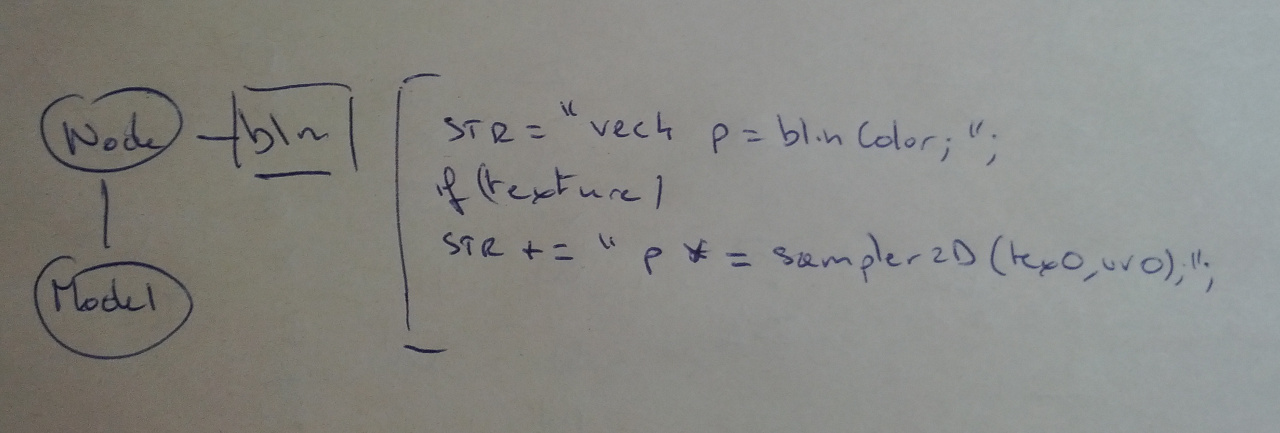 Node
bln
Model
STR = "vec4 p = blin Color; ";
if (texture)
STR += " p *= sampler2D (tex0, uv0);";